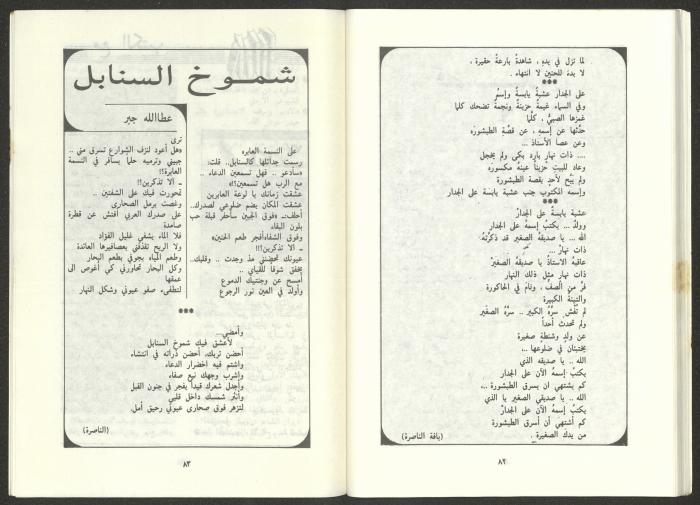 لما تزل في يدهِ ، شاهدةً بارعةً حقيرة ،
لا بدءَ للحنين لا انتهاء .
***
على الجدار عشبةٌ يابسةٌ وإسمٌ
وفي السماء غيمةٌ حزينةٌ ونجمةٌ تضحك كلما
غمزها الصبيُّ ، كلّما
حدّثها عن إسمهِ ، عن قصّةِ الطبشورَه
وعن عصا الأستاذ ...
.... ذات نهارٍ باردٍ بكى ولم يخجل
وعاد للبيتِ حزيناً عينهُ مكسوره
ولم يَبُح لأحدٍ بقصة الطبشورة
وإسمه المكتوبِ جنب عشبة يابسة على الجدار
***
عشبة يابسةٌ على الجدارْ
وولدٌ ... يكتبُ إسمهُ على الجدار
الله ... يا صديقهُ الصغير قد ذكرْتهُ
ذات نهارٍ ...
عاقبهُ الاستاذُ يا صديقهُ الصغيرْ
ذات نهارٍ مثل ذلك النهار
فرَّ من الصفِّ ، ونامَ في الحاكورة
والتينةُ الكبيرة
لم تُفْشِ سرَّهُ الكبير .. سرَّهُ الصغير
ولم تحدث أحداً
عن ولدٍ وشنطةٍ صغيرة
يختبئان في ضلوعها ...
الله .. يا صديقه الذي
يكتبُ إسمهُ الآن على الجدار
كم يشتهي ان يسرق الطبشورة ...
الله .. يا صديقي الصغير يا الذي
يكتبُ إسمهُ الآن على الجدارْ
كم أشتهي أن أسرق الطبشورة
من يدك الصغيرة .
(يافة الناصرة)
٨٢
شموخ السنابل
عطاالله جبر
على النسمة العابره
رسمت جدائلها كالسنابل.. قلت:
«سأدعو .. فهل تسمعين الدعاء ..
مع الرب هل تسمعين؟!»
عشقت زمانك يا لوعة العابرين
عشقت المكان يضم ضلوعي لصدرك..
أحلف.. «فوق الجبين سأحفر قبلة حب
بلون البقاء
وفوق الشفاه أفجر طعم الحنين»
ــ الا تذكرين؟!!
عيونك تحضنني مذ وجدت .. وقلبك..
يخفق شوقا للقياي ..
أمسح عن وجنتيك الدموع
وأولد في العين نور الرجوع
ترى
«هل أعود لنزف الشوارع تسرق مني ..
جبيني وترميه حلما يسافر في النسمة
العابرة؟!
ــ الا تذكرين؟!
تمحورت فيك على الشفتين ..
وغصت برمل الصحارى
على صدرك العربي أفتش عن قطرة
صامدة
فلا الماء يشفي غليل الفؤاد
ولا الريح تقذفني بعصافيرها العائدة
وطعم المياه بجوفي بطعم البحار
وكل البحار تحاورني كي أغوص الى
عمقها
لتطفىء صفو عيوني وشكل النهار
***
وأمضي..
لأعشق فيك شموخ السنابل
أحضن تربك، أحضن ذراته في انتشاء
واشتم فيه اخضرار الدعاء
وإشرب وجهك نبع صفاء
وأجدل شعرك قيداً يفجر في جنون القبل
وأنثر شمسك داخل قلبي
لتزهر فوق صحارى عيوني رحيق أمل.
(الناصرة)
٨٣